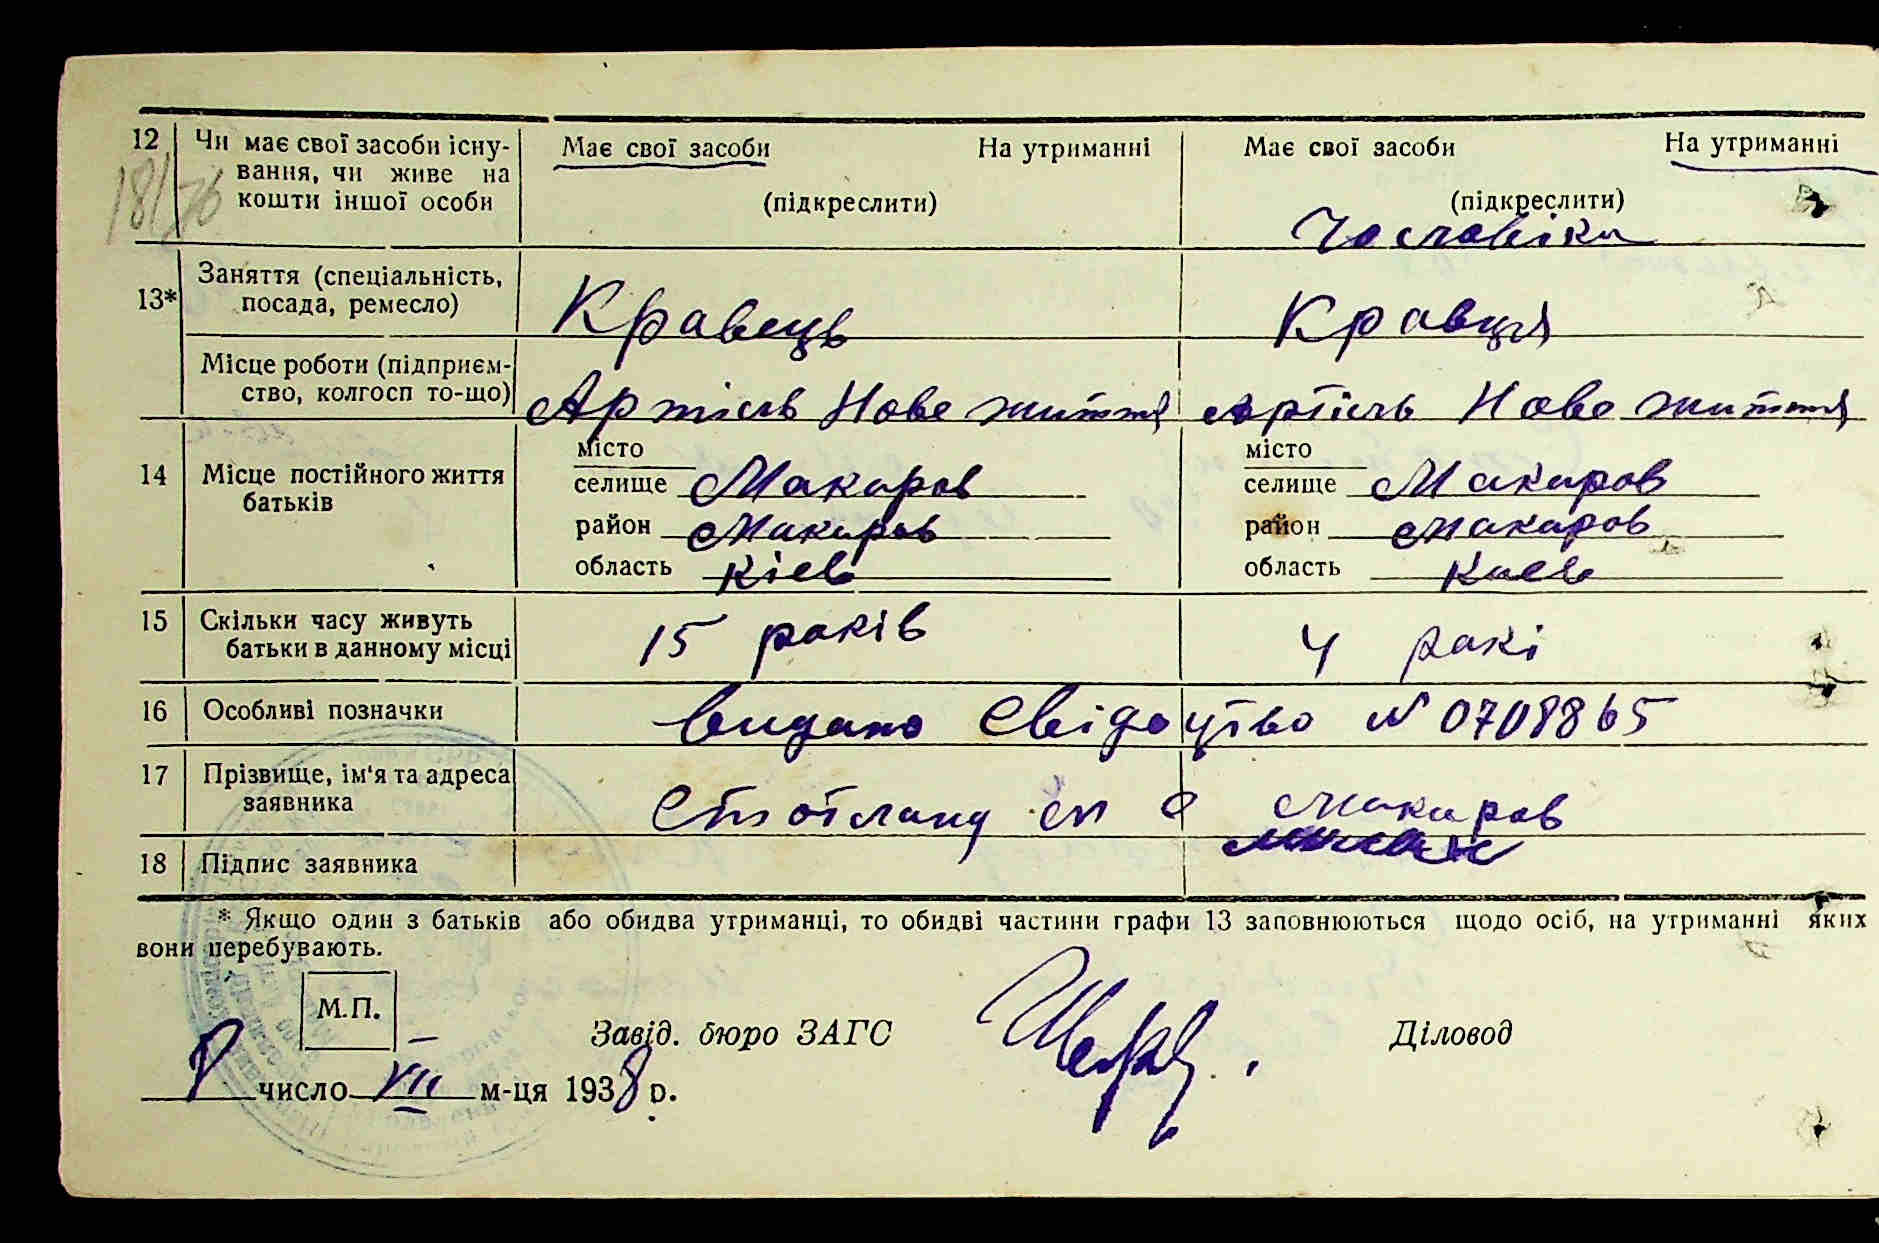 12 Чи має свої засоби існу- Має свої засоби На утриманні Має свої засоби На утриманні
вання, чи живе на
кошти іншої особи (підкреслити) (підкреслити)
181/76
Чоловіка
13* Заняття (спеціальність,
посада, ремесло) Кравець Кравця
Місце роботи (підприєм-
ство, колгосп то-що) Артіль Нове життя Артіль Нове життя
14 Місце постійного життя
батьків
місто місто
селище Макаров селище Макаров
район Макаров район Макаров
область Кіев область Киев
15 Скільки часу живуть
батьки в данному місці 15 років 4 рокі
16 Особливі позначки Видано Свідоцтво N 0708865
17 Прізвище, ім'я та адреса
заявника Стотланд Макаров
18 Підпис заявника
* Якщо один з батьків або обидва утриманці, то обидві частини графи 13 заповнюються щодо осіб, на утриманні яких
вони перебувають.
М.П.
Завід. бюро ЗАГС Діловод
8 число VII м-ця 1938 р.